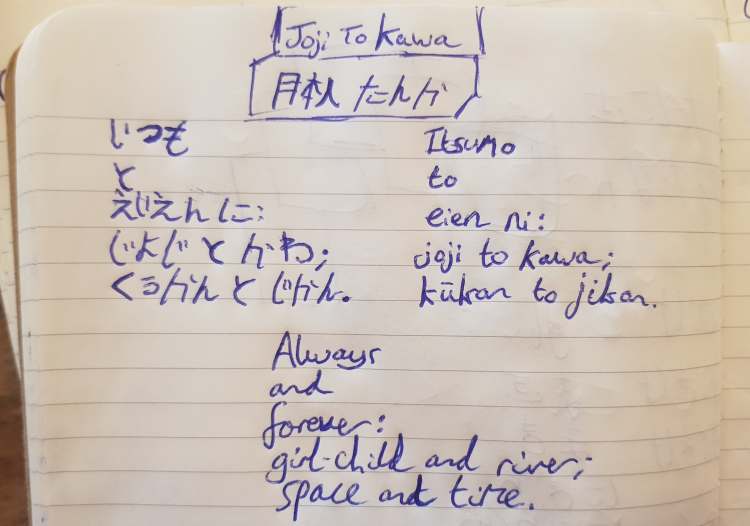 Joji To Kawa
月秋 たんか
いつも
と
えじえんに:
じよじとかわ;
くうかんとじかん.
Itsumo
to
eien ni:
joji to kawa;
kūkan to jikan.
Always
and
forever:
girl-child and river;
space and time.